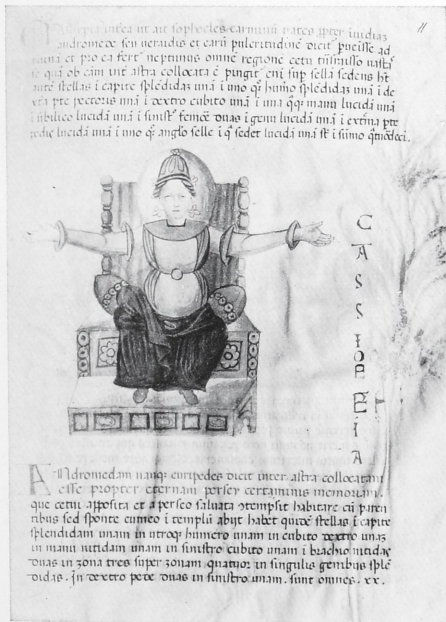 Cassiepia intea ut ait sophocles carminū vates ꝓpter īvidiaꝫ
andromede seu neraidis et earū pulcritudinē dicit̄ puēisse ad
ruina et pro ea fert̄ neptunus omnē regionē cetū īmisisse vastā
se qua ob cām int̄ astra collocata ē pingit̄ eni sup sella sedens ht̄
autē stellas i capite splēdidas unā i uno q̄ꝫ humo splēdidas unā i de
xta pte pectoris unā i dextro cubito unā i una q̄q manu lucidā unā
i ūbilico lucidā unā i sinist̄ femoē duas i genu lucidā unā i extīa pte
pedis lucidā unā i uno q̄ꝫ anglo selle i q̄ sedet lucidā unā st̄ i sūmo q̄tuordeci.
11
CASSIOPEIA
ANdromedam nanqꝫ euripedes dicit inter astra collocatam
esse propter eternam persey certaminis memoriam.
que cetui apposita et a perseo saluata ɔtempsit habitare cū paren
tibus sed sponte cum eo i templū abijt habet quidē stellas i capite
splendidam unam in utroqꝫ humero unam in cubito dextro unaꝫ
in manu nitidam unam in sinistro cubito unam i brachio nitidas
duas in zona tres super zonam quatuor in singulis genibus splē
didas. In dextro pede duas in sinistro unam. sunt omnes .xx.